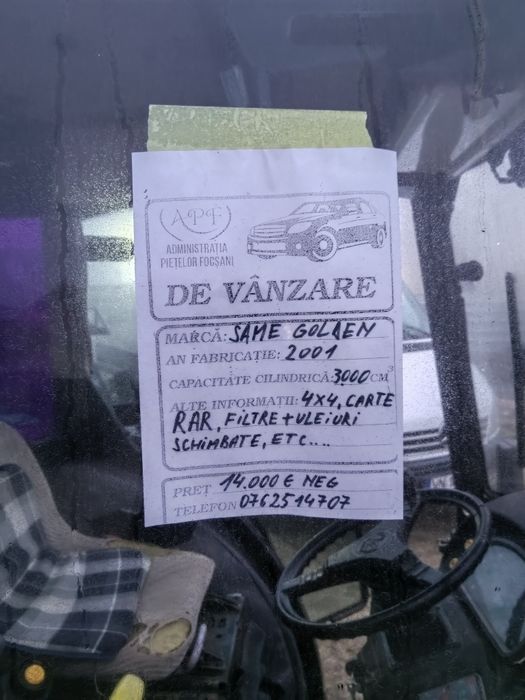 APF
ADMINISTRAȚIA
PIEȚELOR FOCȘANI
DE VÂNZARE
MARCĂ: SAME GOLDEN
AN FABRICAȚIE: 2001
CAPACITATE CILINDRICĂ: 3000 CM³
ALTE INFORMAȚII: 4X4, CARTE
RAR, FILTRE + ULEIURI
SCHIMBATE, ETC....
PREȚ 14.000 € NEG
TELEFON 0762514707